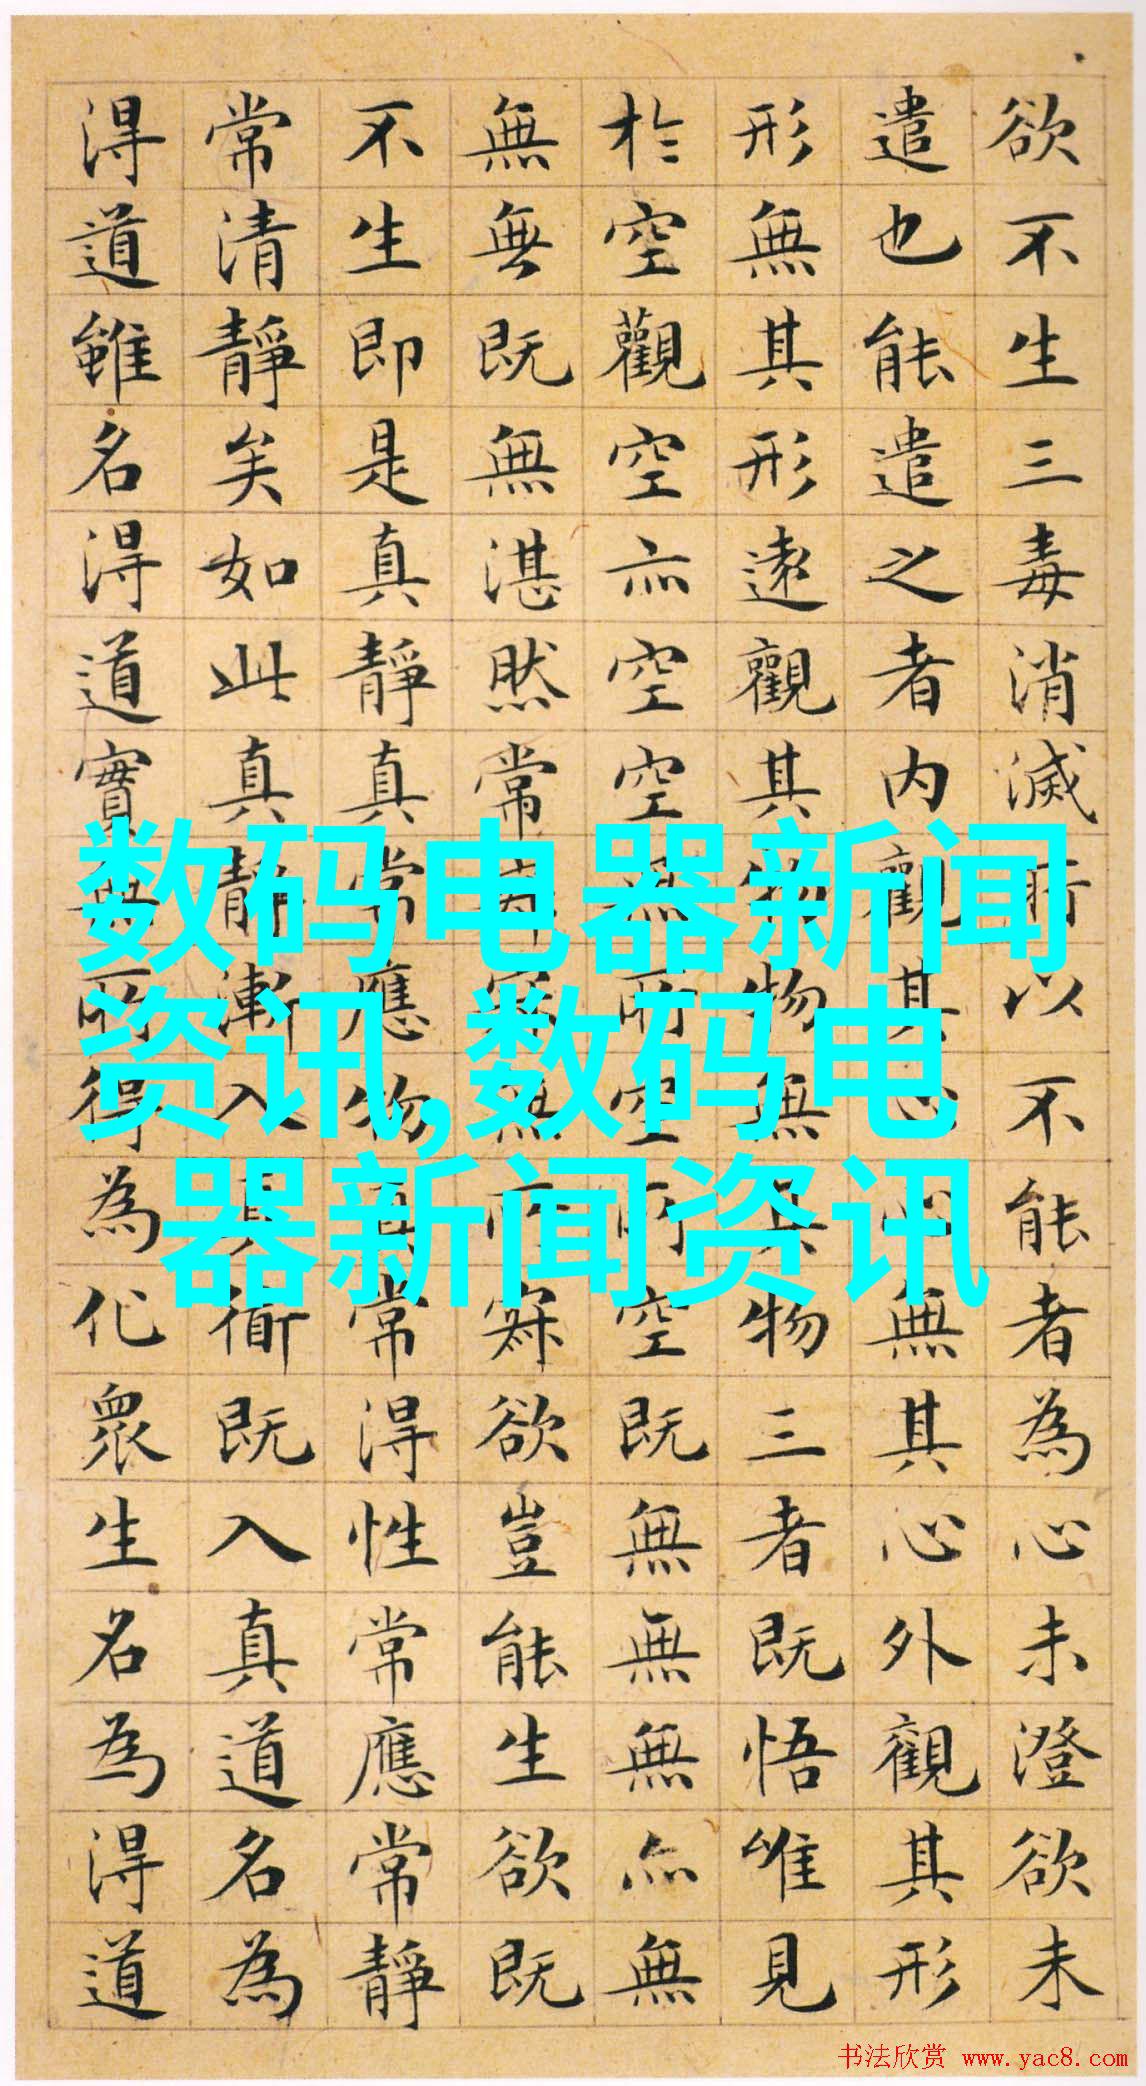 欲不生三毒消滅所以不能者為心未澄欲未
遣也能遣之者内觀其心心無其心外觀其形
形無其形遠觀其物物無其物三者既悟唯見
於空觀空亦空空無所空所空既無無無亦無
無無既無湛然常寂寂無所寂欲豈能生欲既
不生即是真靜真常應物真常得性常應常靜
常清靜矣如此真靜漸入真衜既入真道名為
得道雖名得道實無所得為化眾生名為得道
数码电器新闻
资讯,数码电
器新闻资讯
书法欣赏 www.yac8.com